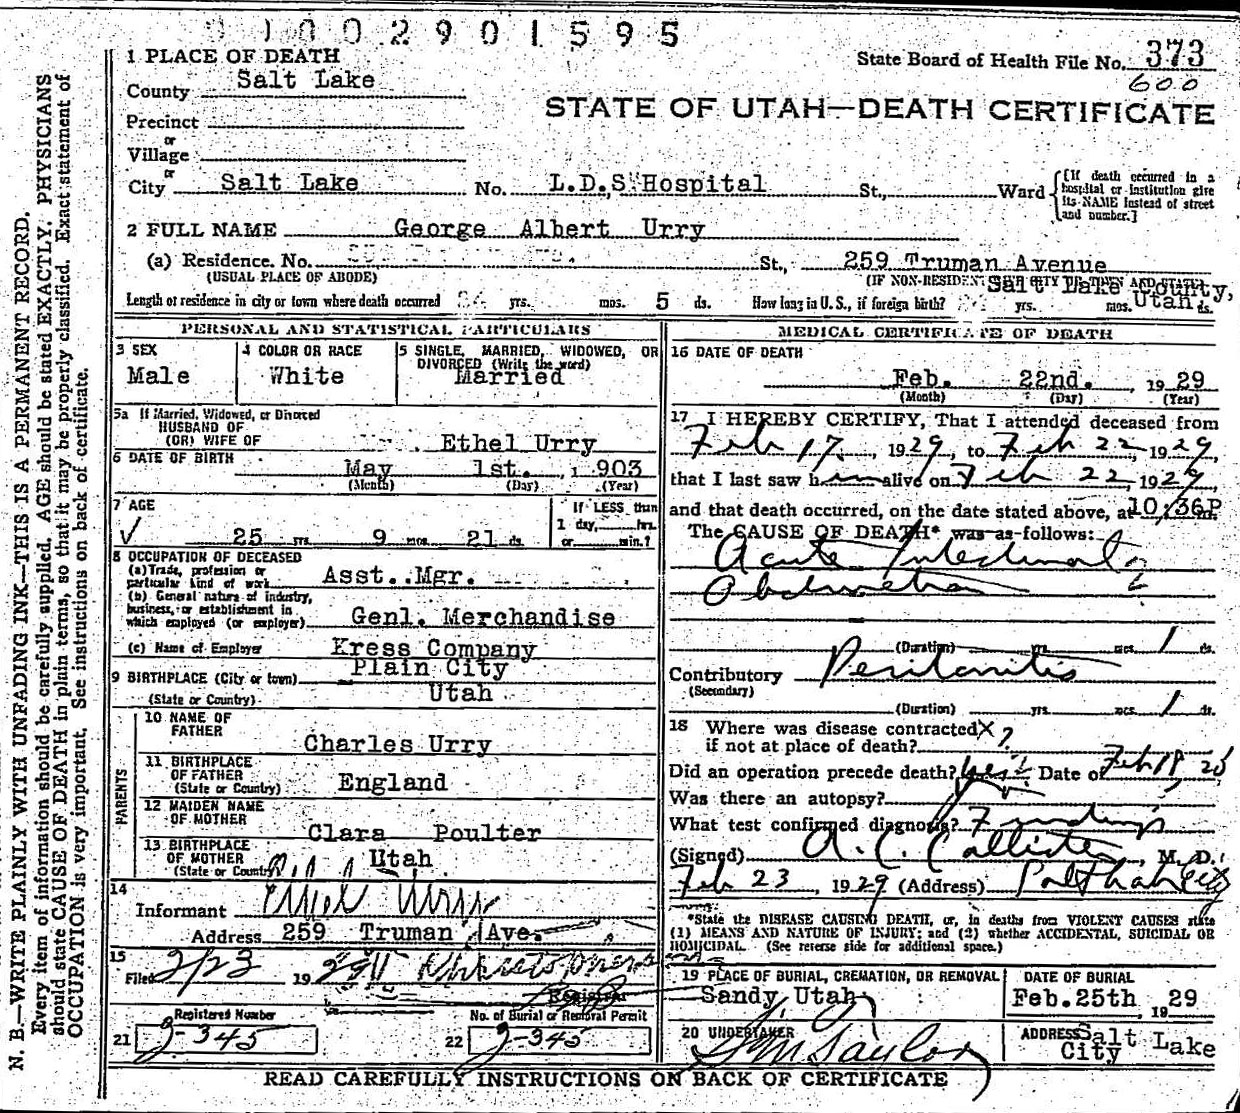 0 1 0 0 2 9 0 1 5 9 5
1 PLACE OF DEATH
State Board of Health File No. 373
600
County Salt Lake
STATE OF UTAH—DEATH CERTIFICATE
Precinct
or
Village
or
City Salt Lake No. L.D.S Hospital St., Ward
[If death occurred in a hospital or institution give its NAME instead of street and number.]
2 FULL NAME George Albert Urry
(a) Residence. No. St., 259 Truman Avenue
(USUAL PLACE OF ABODE)
(IF NON-RESIDENT GIVE CITY OR TOWN AND STATE)
Salt Lake County, Utah.
Length of residence in city or town where death occurred yrs. mos. 5 ds. How long in U.S., if foreign birth? yrs. mos. ds.
PERSONAL AND STATISTICAL PARTICULARS
3 SEX
Male
4 COLOR OR RACE
White
5 SINGLE, MARRIED, WIDOWED, OR
DIVORCED (Write the word)
Married
5a If Married, Widowed, or Divorced
HUSBAND OF
(OR) WIFE OF Ethel Urry
6 DATE OF BIRTH
May 1st. 1903
(Month) (Day) (Year)
7 AGE
25 yrs. 9 mos. 21 ds.
If LESS than
1 day, hrs.
or min.?
8 OCCUPATION OF DECEASED
(a) Trade, profession or
particular kind of work Asst. Mgr.
(b) General nature of industry,
business, or establishment in
which employed (or employer) Genl. Merchandise
(c) Name of Employer Kress Company
9 BIRTHPLACE (City or town) Plain City
(State or Country) Utah
PARENTS
10 NAME OF
FATHER
Charles Urry
11 BIRTHPLACE
OF FATHER
(State or Country) England
12 MAIDEN NAME
OF MOTHER
Clara Poulter
13 BIRTHPLACE
OF MOTHER
(State or Country) Utah
14
Informant Ethel Urry
Address 259 Truman Ave.
15
Filed 2/23 1929
Registrar
Registered Number
21 J-345
No. of Burial or Removal Permit
22 J-345
MEDICAL CERTIFICATE OF DEATH
16 DATE OF DEATH
Feb. 22nd. , 1929
(Month) (Day) (Year)
17 I HEREBY CERTIFY, That I attended deceased from
Feb 17, 1929, to Feb 22, 1929,
that I last saw him alive on Feb 22, 1929,
and that death occurred, on the date stated above, at 10:36P m.
The CAUSE OF DEATH* was as follows:
Acute Intestinal
Obstruction
(Duration) yrs. mos. 1 ds.
Contributory Peritonitis
(Secondary)
(Duration) yrs. mos. 1 ds.
18 Where was disease contracted X ?
if not at place of death?
Did an operation precede death? yes Date of Feb 18,
Was there an autopsy?
What test confirmed diagnosis? Findings
(Signed) A. C. Callister, M. D.
Feb 23, 1929 (Address) Salt Lake City
*State the DISEASE CAUSING DEATH, or, in deaths from VIOLENT CAUSES state
(1) MEANS AND NATURE OF INJURY; and (2) whether ACCIDENTAL, SUICIDAL OR
HOMICIDAL. (See reverse side for additional space.)
19 PLACE OF BURIAL, CREMATION, OR REMOVAL
Sandy Utah
DATE OF BURIAL
Feb.25th , 1929
20 UNDERTAKER
Taylor
ADDRESS Salt Lake
City
READ CAREFULLY INSTRUCTIONS ON BACK OF CERTIFICATE
N. B.—WRITE PLAINLY WITH UNFADING INK—THIS IS A PERMANENT RECORD.
Every item of information should be carefully supplied. AGE should be stated EXACTLY. PHYSICIANS
should state CAUSE OF DEATH in plain terms, so that it may be properly classified. Exact statement of
OCCUPATION is very important. See instructions on back of certificate.